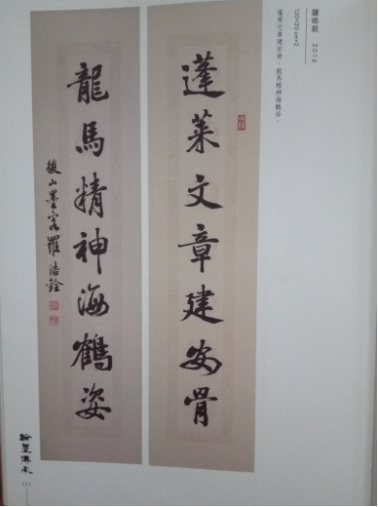 2014
蓬萊文章建安骨，龍馬精神海鶴姿。
蓬萊文章建安骨
龍馬精神海鶴姿
羅浩銓